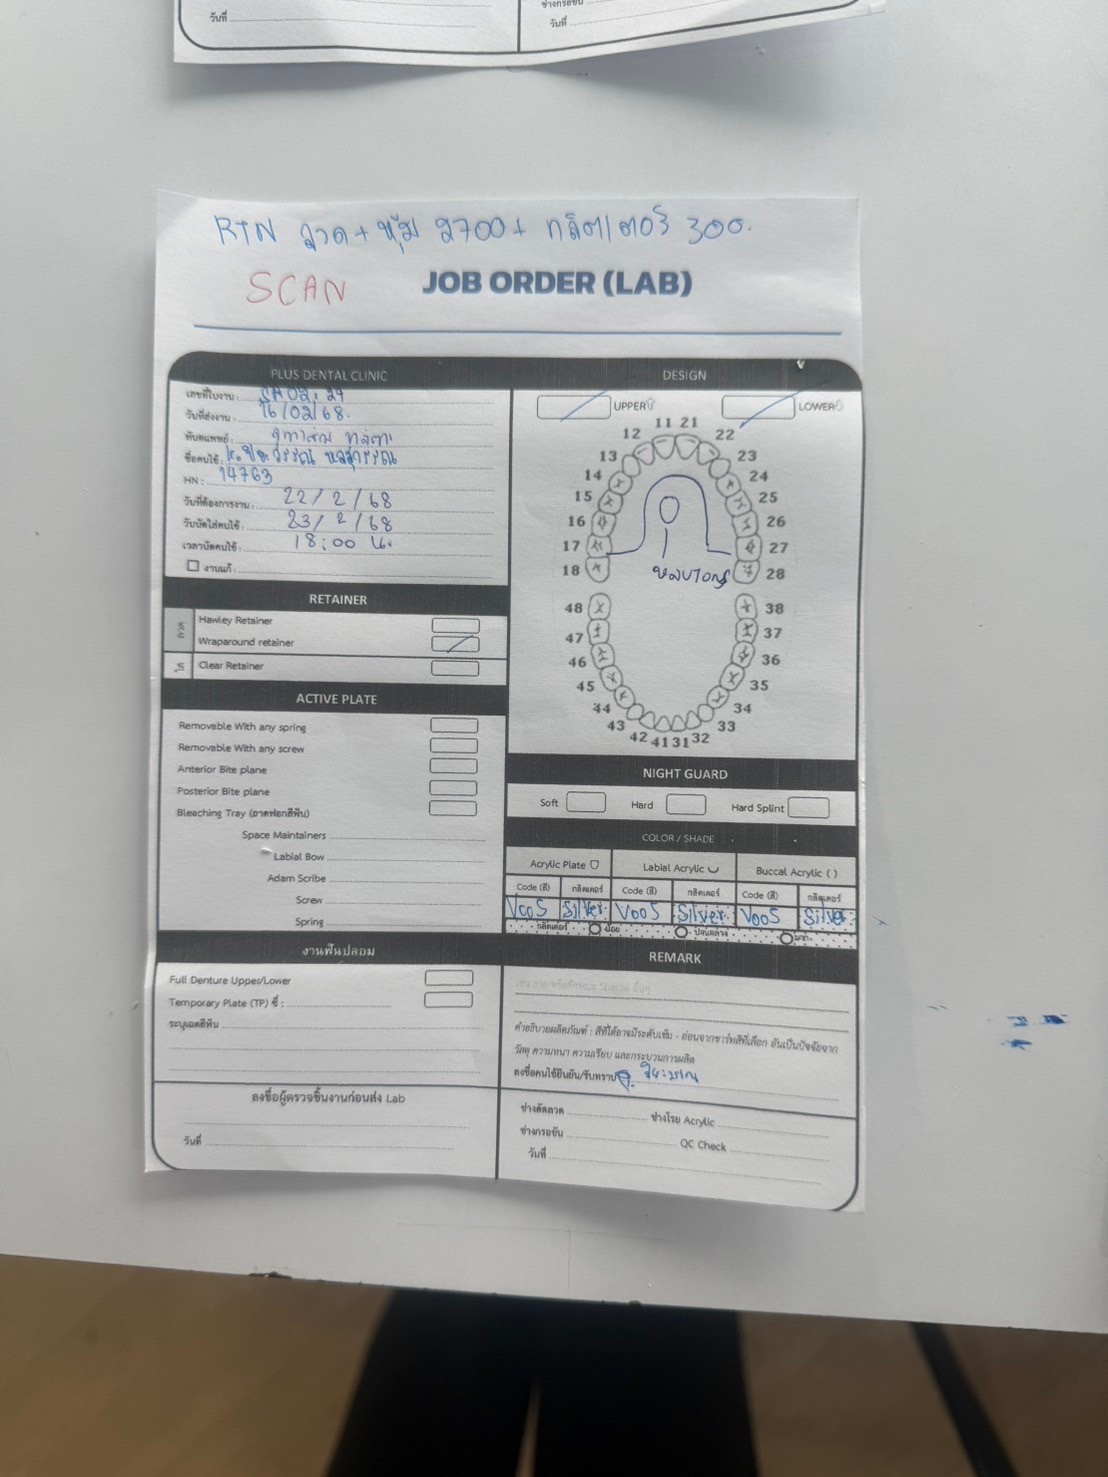 วันที่
ช่างกรอขัน
วันที่
RTN ลวด + หุ้ม 2700 + กลิตเตอร์ 300.
SCAN
JOB ORDER (LAB)
PLUS DENTAL CLINIC
เลขที่ใบงาน :
วันที่ส่งงาน : 16/02/68.
ทันตแพทย์ :
ชื่อคนไข้ :
HN : 14763
วันที่ต้องการงาน : 22/2/68
วันนัดใส่คนไข้ : 23/2/68
เวลานัดคนไข้ : 18:00 น.
งานแก้ :
RETAINER
ลวด
Hawley Retainer
Wraparound retainer
ใส
Clear Retainer
ACTIVE PLATE
Removable With any spring
Removable With any screw
Anterior Bite plane
Posterior Bite plane
Bleaching Tray (ถาดฟอกสีฟัน)
Space Maintainers
Labial Bow
Adam Scribe
Screw
Spring
งานฟันปลอม
Full Denture Upper/Lower
Temporary Plate (TP) ซี่ :
ระบุเฉดสีฟัน
ลงชื่อผู้ตรวจชิ้นงานก่อนส่ง Lab
วันที่
DESIGN
UPPER LOWER
11 21
12 22
13 23
14 24
15 25
16 26
17 27
18 28
48 38
47 37
46 36
45 35
44 34
43 33
42 41 31 32
NIGHT GUARD
Soft Hard Hard Splint
COLOR / SHADE
Acrylic Plate Labial Acrylic Buccal Acrylic ( )
Code (สี) กลิตเตอร์ Code (สี) กลิตเตอร์ Code (สี) กลิตเตอร์
V005 Silver V005 Silver V005 Silver
กลิตเตอร์ น้อย ปานกลาง มาก
REMARK
คำอธิบายผลิตภัณฑ์ : สีที่ได้อาจมีระดับเข้ม - อ่อนจากชาร์ทสีที่เลือก อันเป็นปัจจัยจาก
วัสดุ ความหนา ความเรียบ และกระบวนการผลิต
ลงชื่อคนไข้ยืนยัน/รับทราบ
ช่างดัดลวด ช่างโรย Acrylic
ช่างกรอขัน QC Check
วันที่